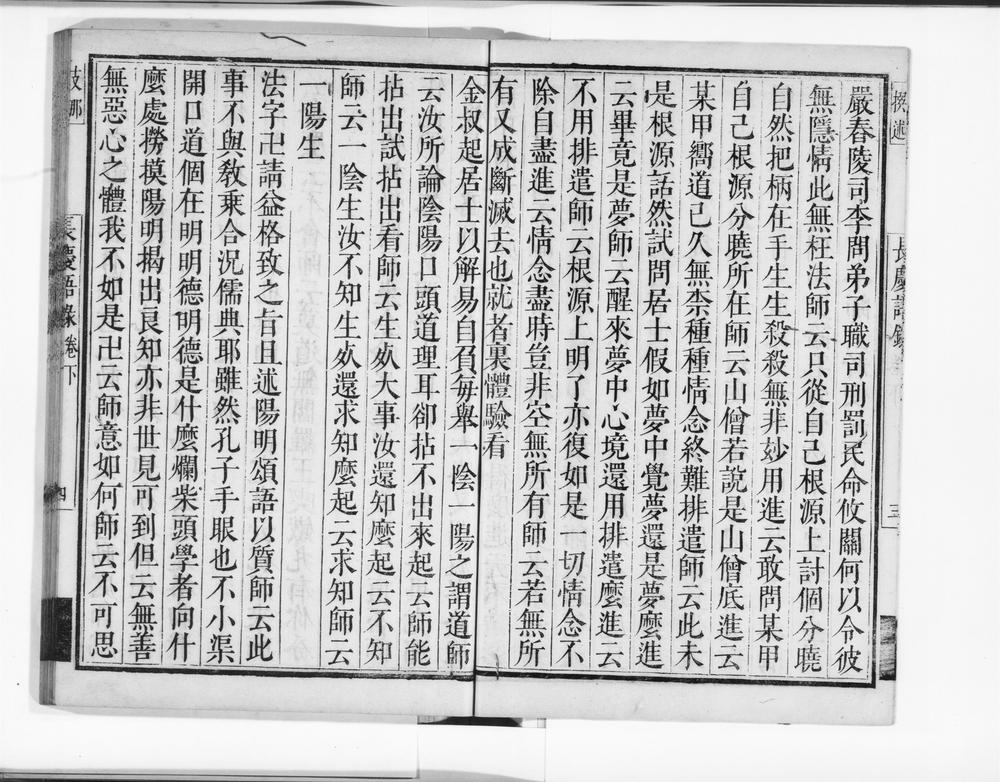 嚴春陵司李問弟子職司刑罰民命攸關何以令彼
無隱情此無枉法師云只從自己根源上討個分曉
自然把柄在手生生殺殺無非妙用進云敢問某甲
自己根源分曉所在師云山僧若說是山僧底進云
某甲嚮道已久無柰種種情念終難排遣師云此未
是根源話然試問居士假如夢中覺夢還是夢麼進
云畢竟是夢師云醒來夢中心境還用排遣麼進云
不用排遣師云根源上明了亦復如是一切情念不
除自盡進云情念盡時豈非空無所有師云若無所
有又成斷滅去也就者裏體驗看
金叔起居士以解易自負每舉一陰一陽之謂道師
云汝所論陰陽口頭道理耳卻拈不出來起云師能
拈出試拈出看師云生死大事汝還知麼起云不知
師云一陰生汝不知生死還求知麼起云求知師云
一陽生
法字卍請益格致之旨且述陽明頌語以質師云此
事不與敎乗合況儒典耶雖然孔子手眼也不小渠
開口道個在明明德明德是什麼爛柴頭學者向什
麼處撈摸陽明揭出良知亦非世見可到但云無善
無惡心之體我不如是卍云師意如何師云不可思
長慶語錄
三
支那
長慶語錄卷下
四